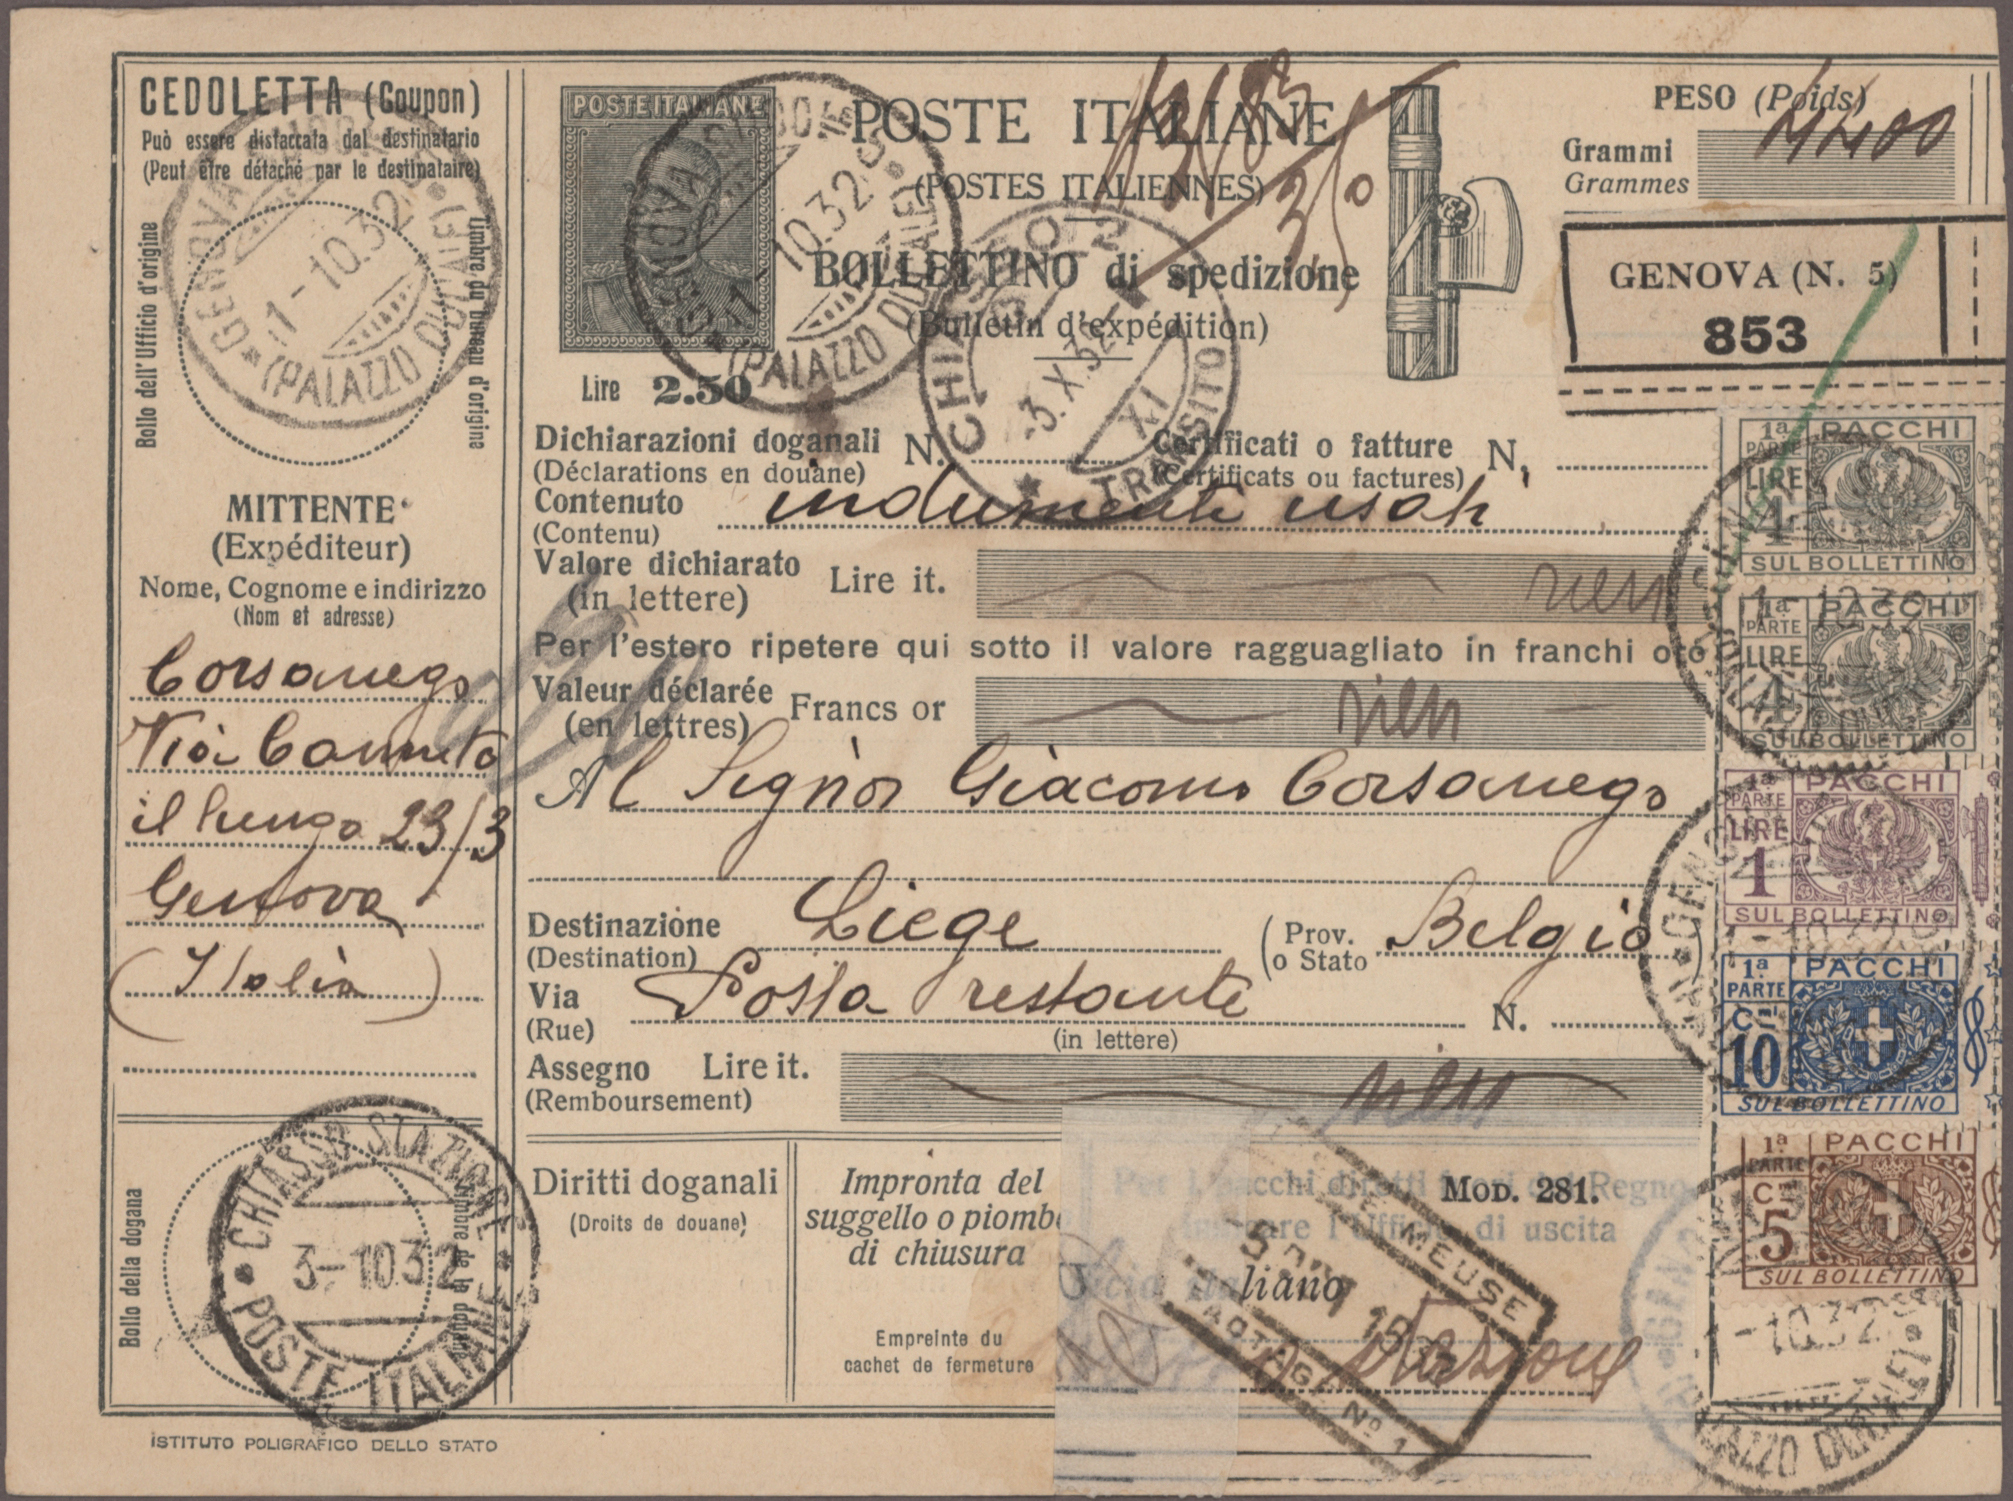 CEDOLETTA (Coupon)
Può essere distaccata dal destinatario
(Peut être détaché par le destinataire)
Bollo dell' Ufficio d'origine
Timbre du bureau d'origine
GENOVA
1-10.32
(PALAZZO DUCALE)
MITTENTE
(Expéditeur)
Nome, Cognome e indirizzo
(Nom et adresse)
Corsanego
Via Canneto
il lungo 23/3
Genova
(Italia)
Bollo della dogana
Timbre de la douane
CHIASSO STAZIONE
3-10 32
POSTE ITALIANE
ISTITUTO POLIGRAFICO DELLO STATO
POSTE ITALIANE
Lire 2.50
GENOVA
1-10.32
(PALAZZO DUCALE)
POSTE ITALIANE
(POSTES ITALIENNES)
BOLLETTINO di spedizione
(Bulletin d'expédition)
CHIASSO 2
-3.X.32
XI
TRANSITO
PESO (Poids)
Grammi
Grammes
4400
GENOVA (N. 5)
853
Dichiarazioni doganali N.
(Déclarations en douane)
Certificati o fatture N.
(Certificats ou factures)
Contenuto indumenti usati
(Contenu)
Valore dichiarato Lire it. rien
(in lettere)
Per l'estero ripetere qui sotto il valore ragguagliato in franchi oro
Valeur déclarée Francs or rien
(en lettres)
Al Signor Giacomo Corsanego
Destinazione Liege (Prov. o Stato Belgio)
(Destination)
Via Posta restante N.
(Rue)
(in lettere)
Assegno Lire it. rien
(Remboursement)
Diritti doganali
(Droits de douane)
Impronta del
suggello o piombo
di chiusura
Empreinte du
cachet de fermeture
Per i pacchi diretti fuori del Regno
MOD. 281.
indicare l'Ufficio di uscita
liano
MEUSE
5
Nº 1
1ª PARTE PACCHI
LIRE 4
SUL BOLLETTINO
1ª PARTE PACCHI
LIRE 4
SUL BOLLETTINO
1ª PARTE PACCHI
LIRE 1
SUL BOLLETTINO
1ª PARTE PACCHI
Cmi 10
SUL BOLLETTINO
1ª PARTE PACCHI
Cmi 5
SUL BOLLETTINO
1-10.32